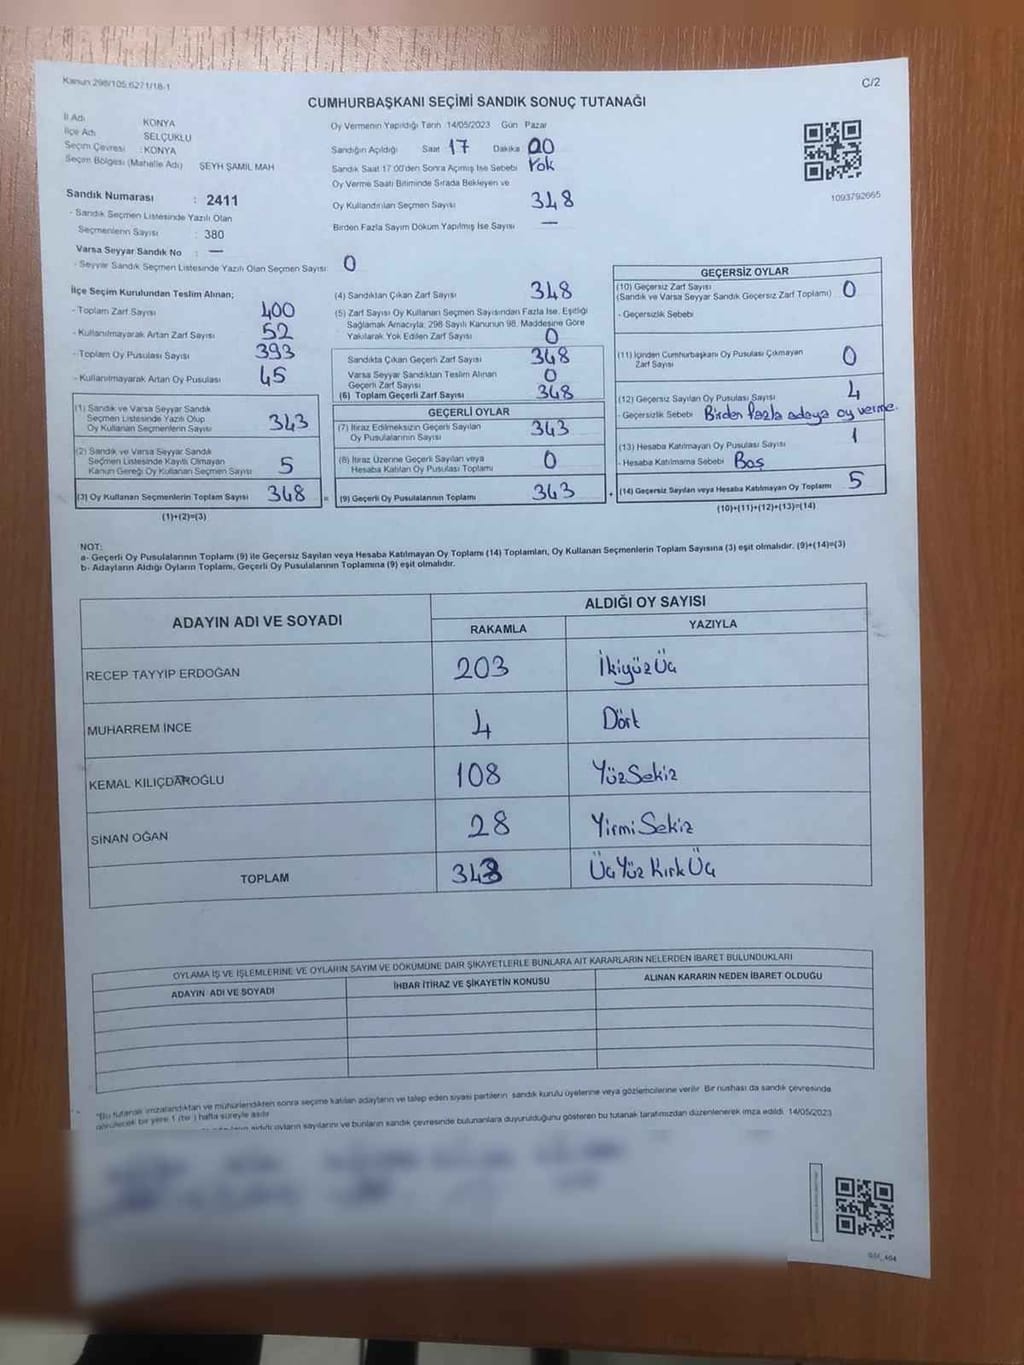 Kanun 298/105;6271/18-1
C/2
CUMHURBAŞKANI SEÇİMİ SANDIK SONUÇ TUTANAĞI
İl Adı KONYA
İlçe Adı SELÇUKLU
Seçim Çevresi : KONYA
Seçim Bölgesi (Mahalle Adı) ŞEYH ŞAMİL MAH
Sandık Numarası : 2411
- Sandık Seçmen Listesinde Yazılı Olan
Seçmenlerin Sayısı : 380
Varsa Seyyar Sandık No : —
- Seyyar Sandık Seçmen Listesinde Yazılı Olan Seçmen Sayısı: 0
Oy Vermenin Yapıldığı Tarih 14/05/2023 Gün Pazar
Sandığın Açıldığı Saat 17 Dakika 00
Sandık Saat 17:00'den Sonra Açmış İse Sebebi Yok
Oy Verme Saati Bitiminde Sırada Bekleyen ve
Oy Kullandırılan Seçmen Sayısı 348
Birden Fazla Sayım Döküm Yapılmış İse Sayısı —
1093792665
İlçe Seçim Kurulundan Teslim Alınan;
- Toplam Zarf Sayısı 400
- Kullanılmayarak Artan Zarf Sayısı 52
- Toplam Oy Pusulası Sayısı 393
- Kullanılmayarak Artan Oy Pusulası 45
(1) Sandık ve Varsa Seyyar Sandık
Seçmen Listesinde Yazılı Olup
Oy Kullanan Seçmenlerin Sayısı 343
(2) Sandık ve Varsa Seyyar Sandık
Seçmen Listesinde Kayıtlı Olmayan
Kanun Gereği Oy Kullanan Seçmen Sayısı 5
(3) Oy Kullanan Seçmenlerin Toplam Sayısı 348 =
(1)+(2)=(3)
(4) Sandıktan Çıkan Zarf Sayısı 348
(5) Zarf Sayısı Oy Kullanan Seçmen Sayısından Fazla İse, Eşitliği
Sağlamak Amacıyla, 298 Sayılı Kanunun 98. Maddesine Göre
Yakılarak Yok Edilen Zarf Sayısı 0
Sandıkta Çıkan Geçerli Zarf Sayısı 348
Varsa Seyyar Sandıktan Teslim Alınan
Geçerli Zarf Sayısı 0
(6) Toplam Geçerli Zarf Sayısı 348
GEÇERLİ OYLAR
(7) İtiraz Edilmeksizin Geçerli Sayılan
Oy Pusulalarının Sayısı 343
(8) İtiraz Üzerine Geçerli Sayılan veya
Hesaba Katılan Oy Pusulası Toplamı 0
(9) Geçerli Oy Pusulalarının Toplamı 343 +
GEÇERSİZ OYLAR
(10) Geçersiz Zarf Sayısı
(Sandık ve Varsa Seyyar Sandık Geçersiz Zarf Toplamı) 0
- Geçersizlik Sebebi
(11) İçinden Cumhurbaşkanı Oy Pusulası Çıkmayan
Zarf Sayısı 0
(12) Geçersiz Sayılan Oy Pusulası Sayısı 4
- Geçersizlik Sebebi Birden fazla adaya oy verme.
(13) Hesaba Katılmayan Oy Pusulası Sayısı 1
- Hesaba Katılmama Sebebi Boş
(14) Geçersiz Sayılan veya Hesaba Katılmayan Oy Toplamı 5
(10)+(11)+(12)+(13)=(14)
NOT:
a- Geçerli Oy Pusulalarının Toplamı (9) ile Geçersiz Sayılan veya Hesaba Katılmayan Oy Toplamı (14) Toplamları, Oy Kullanan Seçmenlerin Toplam Sayısına (3) eşit olmalıdır. (9)+(14)=(3)
b- Adayların Aldığı Oyların Toplamı, Geçerli Oy Pusulalarının Toplamına (9) eşit olmalıdır.
ADAYIN ADI VE SOYADI
ALDIĞI OY SAYISI
RAKAMLA YAZIYLA
RECEP TAYYIP ERDOĞAN 203 İkiyüzÜç
MUHARREM İNCE 4 Dört
KEMAL KILIÇDAROĞLU 108 YüzSekiz
SİNAN OĞAN 28 YirmiSekiz
TOPLAM 343 ÜçYüzKırkÜç
OYLAMA İŞ VE İŞLEMLERİNE VE OYLARIN SAYIM VE DÖKÜMÜNE DAİR ŞİKAYETLERLE BUNLARA AİT KARARLARIN NELERDEN İBARET BULUNDUKLARI
ADAYIN ADI VE SOYADI İHBAR İTİRAZ VE ŞİKAYETİN KONUSU ALINAN KARARIN NEDEN İBARET OLDUĞU
*Bu tutanak imzalandıktan ve mühürlendikten sonra seçime katılan adayların ve talep eden siyasi partilerin sandık kurulu üyelerine veya gözlemcilerine verilir. Bir nüshası da sandık çevresinde
görülecek bir yere 1 (bir) hafta süreyle asılır.
aldığı oyların sayılarını ve bunların sandık çevresinde bulunanlara duyurulduğunu gösteren bu tutanak tarafımızdan düzenlenerek imza edildi. 14/05/2023